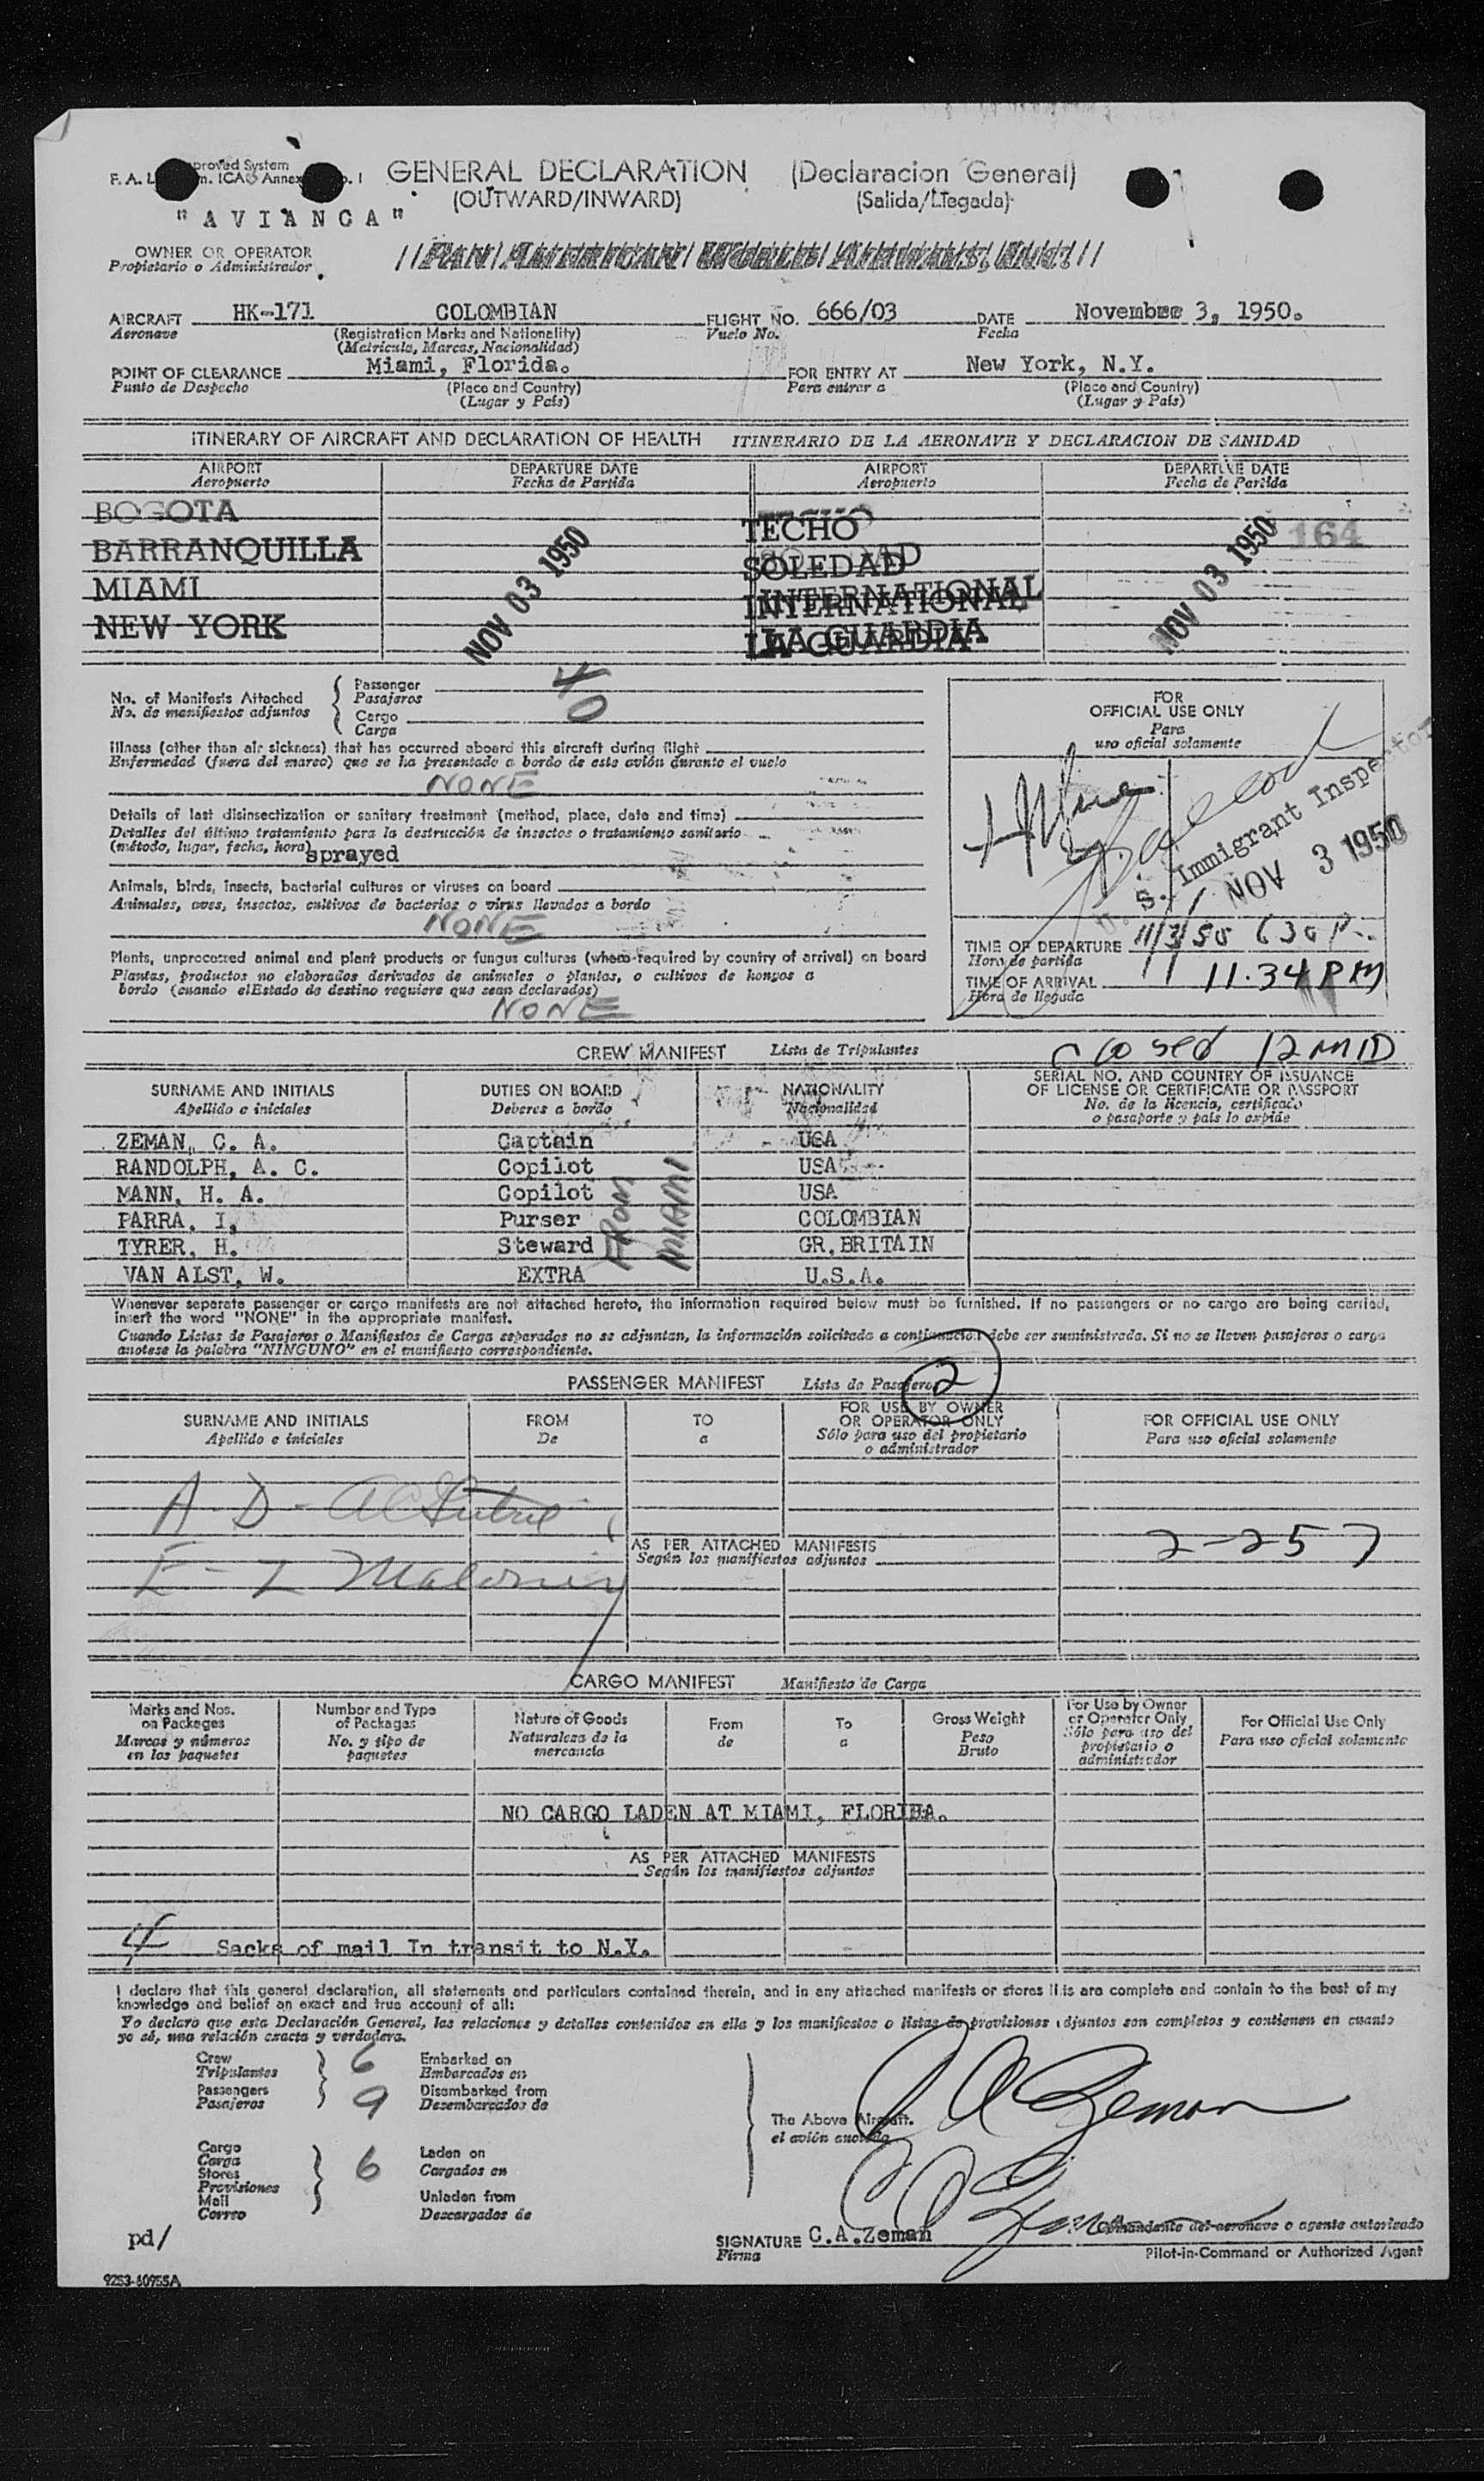 GENERAL DECLARATION (Declaracion General)
(OUTWARD/INWARD) (Salida/Llegada)
"AVIANCA"
OWNER OR OPERATOR
Propietario o Administrador
PAN AMERICAN WORLD AIRWAYS, INC.
AIRCRAFT HK-171 COLOMBIAN FLIGHT NO. 666/03 DATE November 3, 1950.
Aeronave (Registration Marks and Nationality) Vuelo No. Fecha
(Matricula, Marcas, Nacionalidad)
POINT OF CLEARANCE Miami, Florida. FOR ENTRY AT New York, N.Y.
Punto de Despacho (Place and Country) Para entrar a (Place and Country)
(Lugar y País) (Lugar y País)
ITINERARY OF AIRCRAFT AND DECLARATION OF HEALTH ITINERARIO DE LA AERONAVE Y DECLARACION DE SANIDAD
AIRPORT DEPARTURE DATE AIRPORT DEPARTURE DATE
Aeropuerto Fecha de Partida Aeropuerto Fecha de Partida
BOGOTA TECHO
BARRANQUILLA SOLEDAD 164
MIAMI INTERNATIONAL
NEW YORK LA GUARDIA
NOV 03 1950 NOV 03 1950
No. of Manifests Attached Passenger 40
No. de manifiestos adjuntos Pasajeros
Cargo
Carga
FOR
OFFICIAL USE ONLY
Para
uso oficial solamente
Illness (other than air sickness) that has occurred aboard this aircraft during flight
Enfermedad (fuera del mareo) que se ha presentado a bordo de este avión durante el vuelo
NONE
U. S. Immigrant Inspector
NOV 3 1950
Details of last disinsectization or sanitary treatment (method, place, date and time)
Detalles del último tratamiento para la destrucción de insectos o tratamiento sanitario
(método, lugar, fecha, hora) sprayed
Animals, birds, insects, bacterial cultures or viruses on board
Animales, aves, insectos, cultivos de bacterias o virus llevados a bordo
NONE
Plants, unprocessed animal and plant products or fungus cultures (where required by country of arrival) on board
Plantas, productos no elaborados derivados de animales o plantas, o cultivos de hongos a
bordo (cuando elEstado de destino requiere que sean declarados)
NONE
TIME OF DEPARTURE 11/3/50 630 P.
Hora de partida
TIME OF ARRIVAL 11.34 PM
Hora de llegada
CREW MANIFEST Lista de Tripulantes closed 12 MID
SURNAME AND INITIALS DUTIES ON BOARD NATIONALITY SERIAL NO. AND COUNTRY OF ISSUANCE
OF LICENSE OR CERTIFICATE OR PASSPORT
Apellido e iniciales Deberes a bordo Nacionalidad No. de la licencia, certificado
o pasaporte y país lo expide
ZEMAN, C. A. Captain USA
RANDOLPH, A. C. Copilot USA
MANN, H. A. Copilot USA
PARRA, I, Purser COLOMBIAN
TYRER, H. Steward GR.BRITAIN
VAN ALST, W. EXTRA U.S.A.
FROM MIAMI
Whenever separate passenger or cargo manifests are not attached hereto, the information required below must be furnished. If no passengers or no cargo are being carried,
insert the word "NONE" in the appropriate manifest.
Cuando Listas de Pasajeros o Manifiestos de Carga separados no se adjuntan, la información solicitada a continuación debe ser suministrada. Si no se lleven pasajeros o carga
anotese la palabra "NINGUNO" en el manifiesto correspondiente.
PASSENGER MANIFEST Lista de Pasajeros 2
SURNAME AND INITIALS FROM TO FOR USE BY OWNER
OR OPERATOR ONLY FOR OFFICIAL USE ONLY
Apellido e iniciales De a Sólo para uso del propietario
o administrador Para uso oficial solamente
A-D-
E-L Maloney
AS PER ATTACHED MANIFESTS 2-257
Según los manifiestos adjuntos
CARGO MANIFEST Manifiesto de Carga
Marks and Nos.
on Packages
Marcas y números
en los paquetes
Number and Type
of Packages
No. y tipo de
paquetes
Nature of Goods
Naturaleza de la
mercancía
From
de
To
a
Gross Weight
Peso
Bruto
For Use by Owner
or Operator Only
Sólo para uso del
propietario o
administrador
For Official Use Only
Para uso oficial solamente
NO CARGO LADEN AT MIAMI, FLORIDA.
AS PER ATTACHED MANIFESTS
Según los manifiestos adjuntos
4 Sacks of mail In transit to N.Y.
I declare that this general declaration, all statements and particulars contained therein, and in any attached manifests or stores lists are complete and contain to the best of my
knowledge and belief an exact and true account of all:
Yo declaro que esta Declaración General, las relaciones y detalles contenidos en ella y los manifiestos o listas de provisiones adjuntos son completos y contienen en cuanto
yo sé, una relación exacta y verdadera.
Crew 6 Embarked on
Tripulantes Embarcados en
Passengers 9 Disembarked from
Pasajeros Desembarcados de
The Above Aircraft.
el avión anotado
Cargo
Carga
Stores
Provisiones
Mail
Correo
6
Laden on
Cargados en
Unladen from
Descargados de
C A Zeman
C A Zeman
pd/
SIGNATURE C.A.Zeman Comandante del aeronave o agente autorizado
Firma Pilot-in-Command or Authorized Agent
9253-40955A